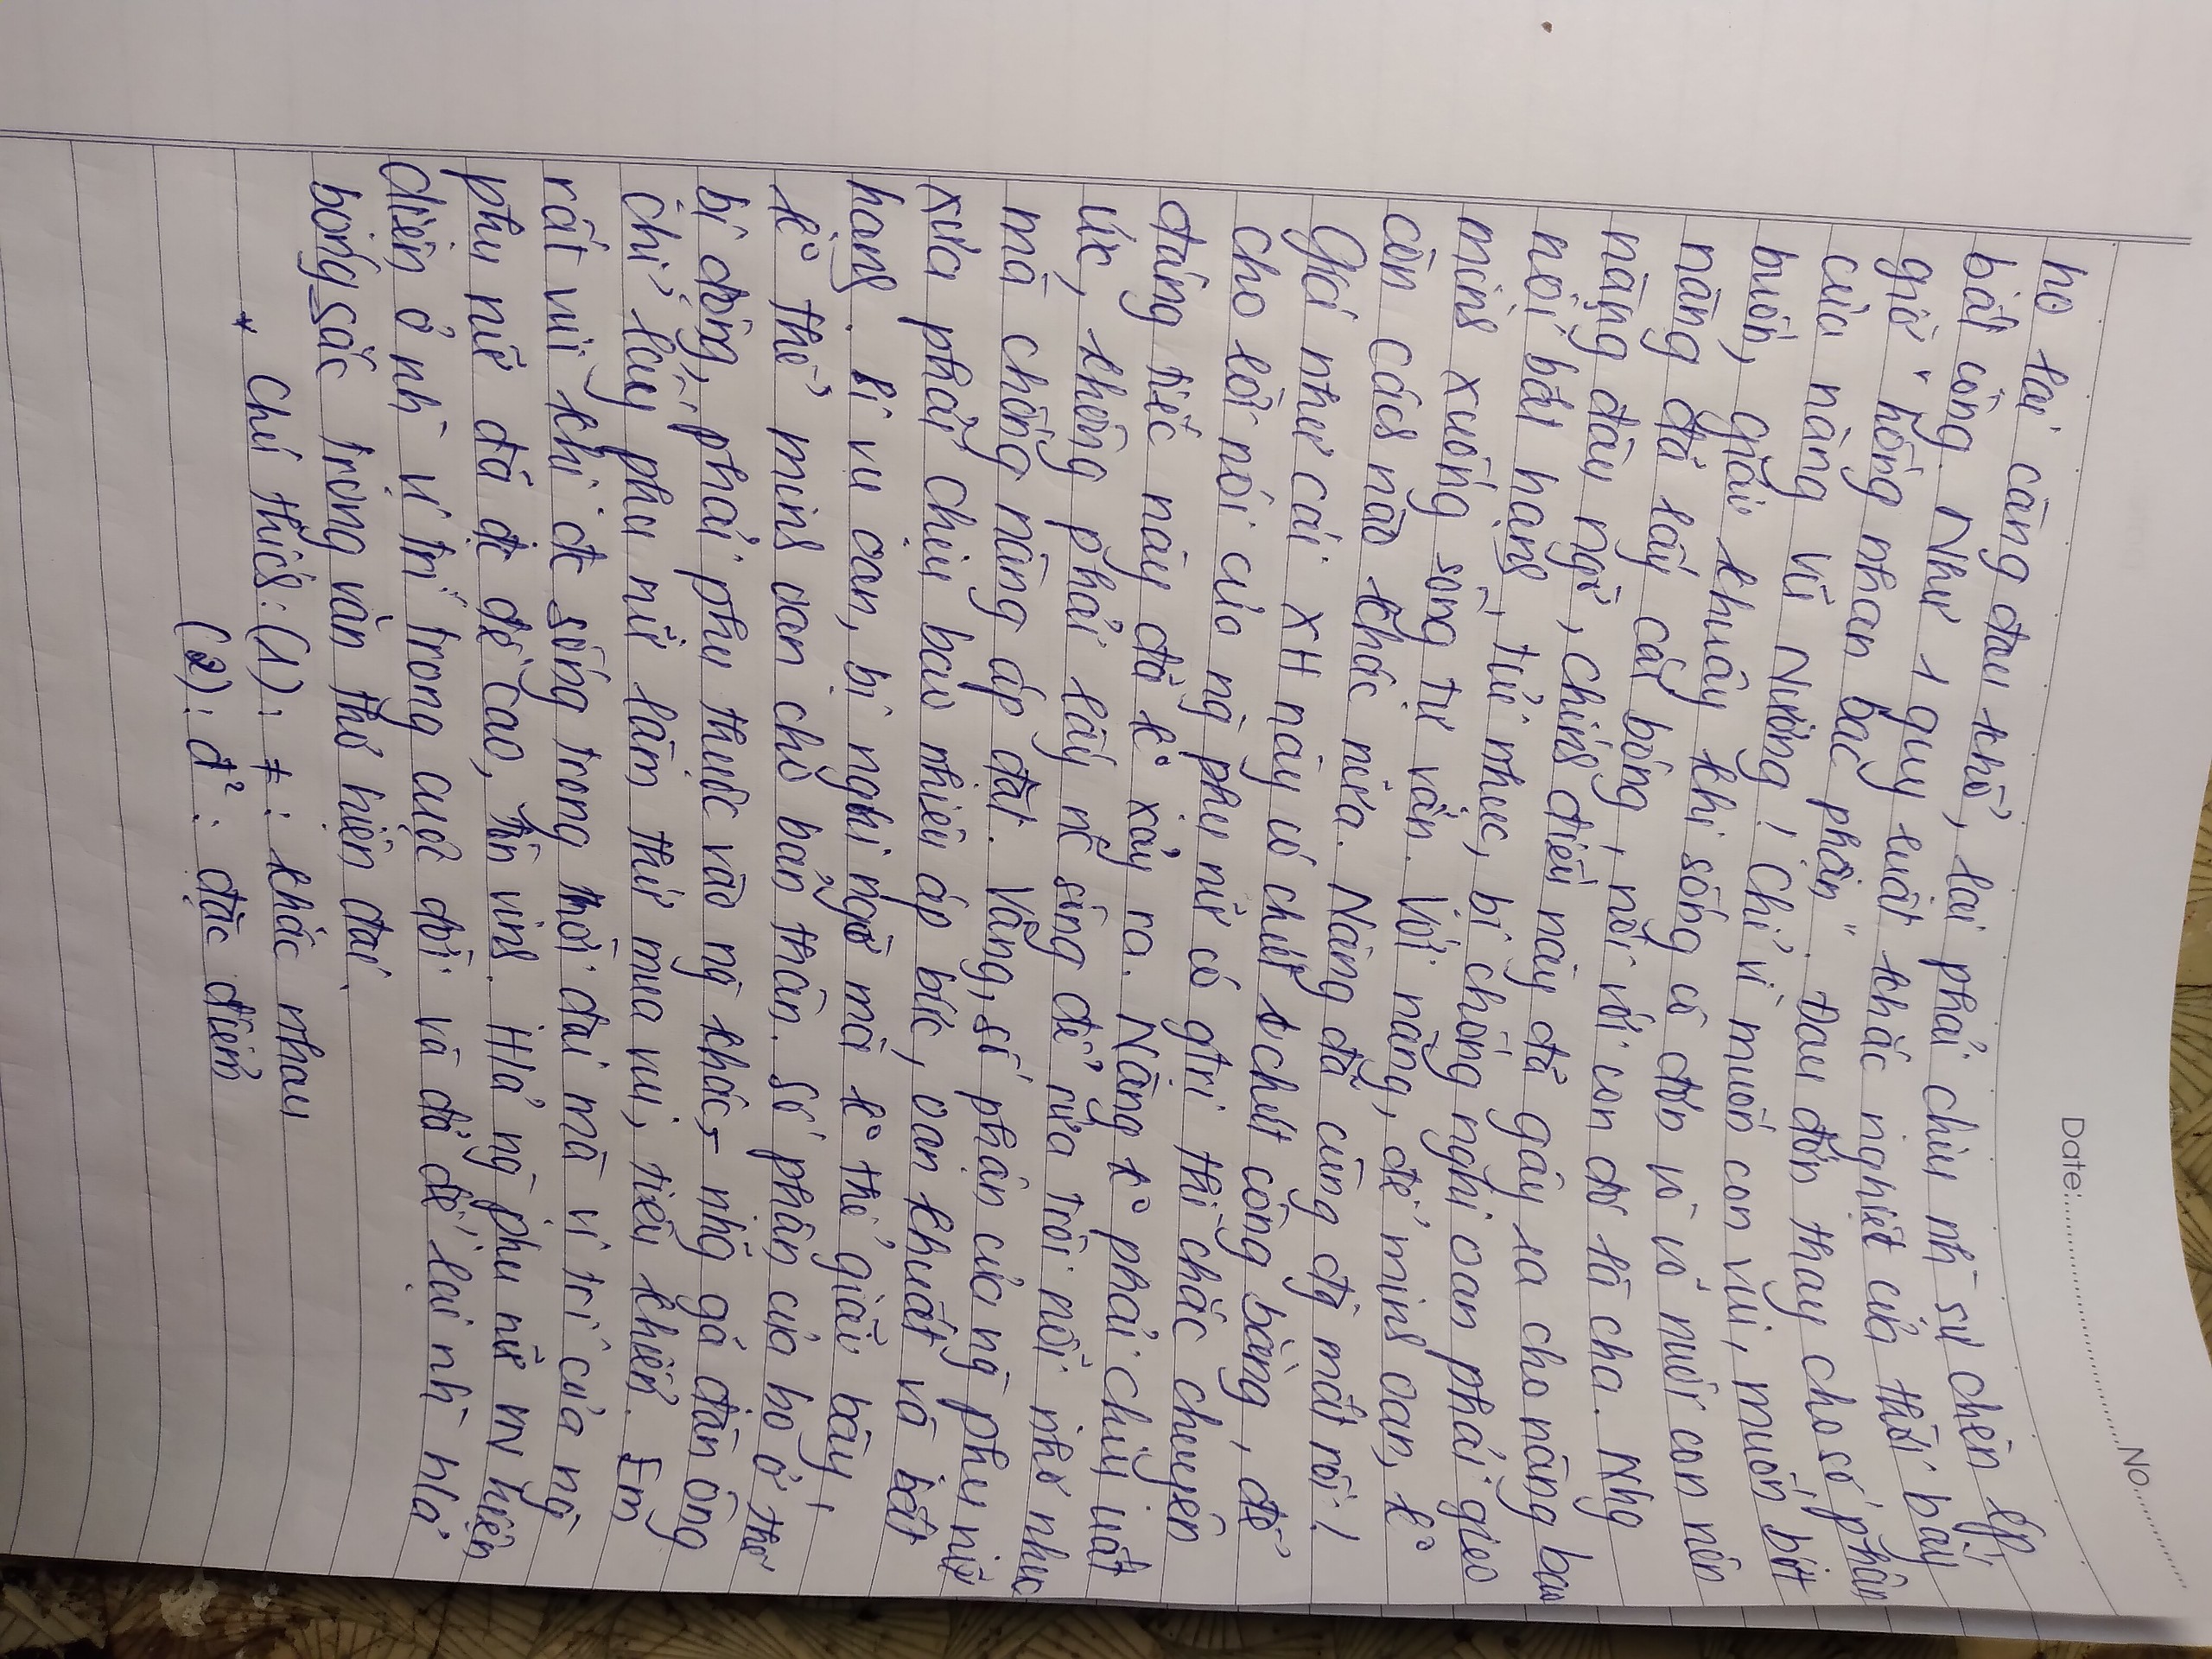 Date:.......................No..............
họ lại càng đau khổ, lại phải chịu nh~ sự chèn ép,
bất công. Như 1 quy luật khắc nghiệt của thời bấy
giờ "hồng nhan bạc phận". Đau đớn thay cho số phận
của nàng Vũ Nương! Chỉ vì muốn con vui, muốn bớt
buồn, giải khuây khi sống cô đơn vò võ nuôi con nên
nàng đã lấy cái bóng, nói với con đó là cha. Nhg
nàng đâu ngờ, chính điều này đã gây ra cho nàng bao
nỗi bất hạnh, tủi nhục, bị chồng nghi oan phải gieo
mình xuống sông tự vẫn. Với nàng, để minh oan, ko
còn cách nào khác nữa. Nàng đã cùng đg mất rồi!
Giá như cái XH này có chút chút công bằng, để
cho lời nói của ng` phụ nữ có gtrị thì chắc chuyện
đáng tiếc này đã ko xảy ra. Nàng ko phải chịu uất
ức, không phải lấy nc sông để rửa trôi nỗi nhơ nhuc
mà chồng nàng áp đặt. Vâng, số phận của ng` phụ nữ
xưa phải chịu bao nhiêu áp bức, oan khuất và bất
hạnh. bị vu oan, bị nghi ngờ mà ko thể giãi bày,
ko thể minh oan cho bản thân. Số phận của họ ở thơ
bị động, phải phụ thuộc vào ng` khác, nhg~ gã đàn ông
chỉ lấy phụ nữ làm thú mua vui, tiêu khiển. Em
rất vui khi đc sống trong thời đại mà vị trí của ng`
phụ nữ đã đc đề cao, tôn vinh. H/ả ng` phụ nữ VN hiện
diện ở nh~ vị trí trong cuộc đời và đã để lại nh~ h/ả
bóng sắc trong văn thơ hiện đại.
* Chú thích: (1): ≠ : khác nhau
(2): đ² : đặc điểm